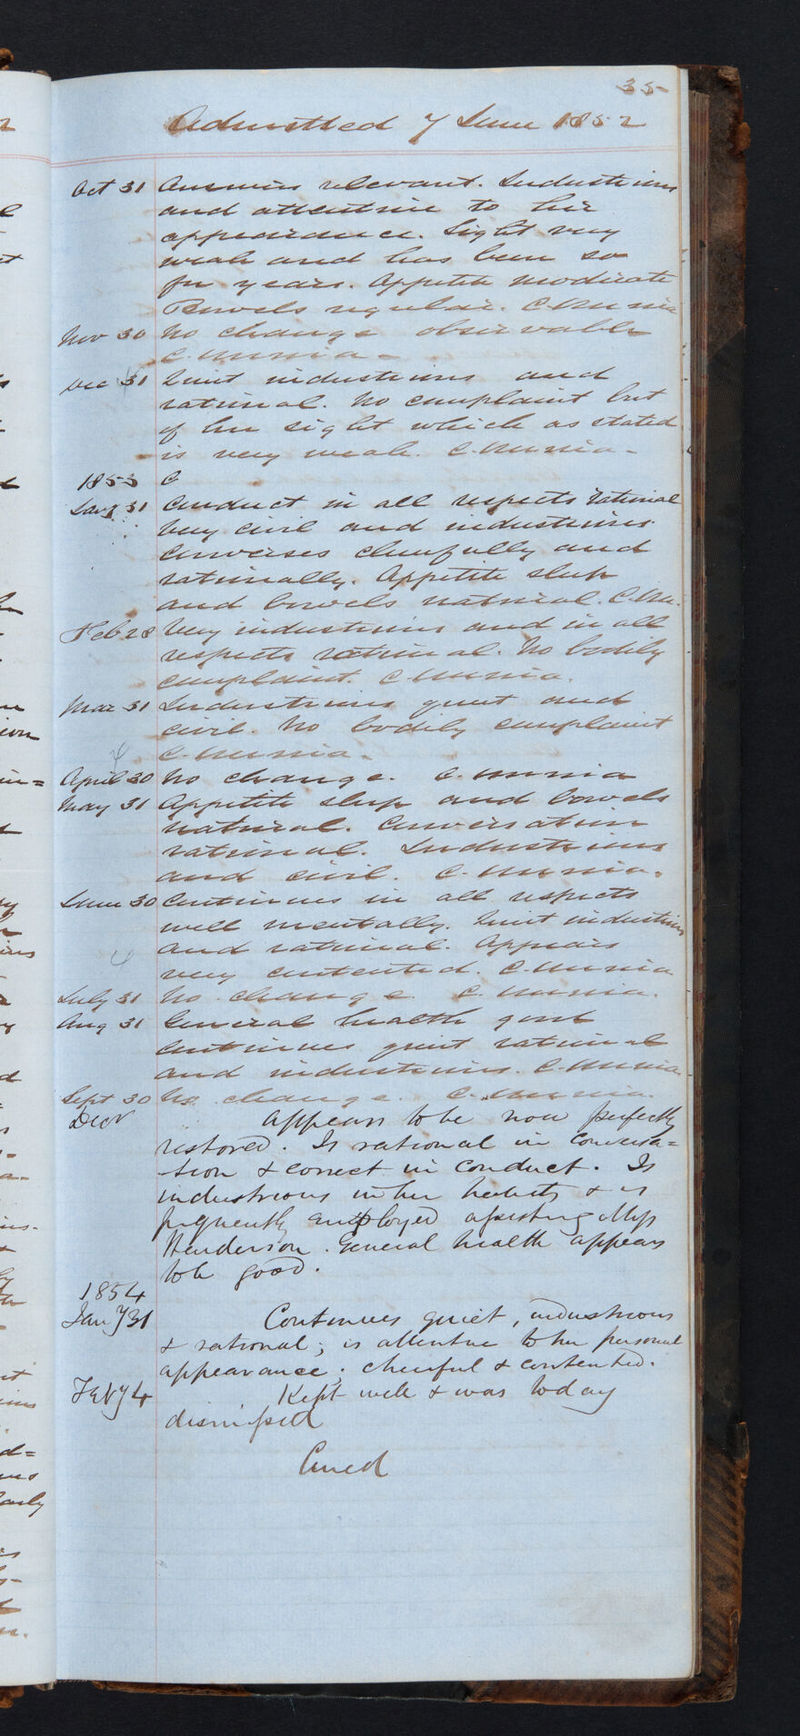 35
Admitted 7 June 1852
Oct 31 Answers relevant. Industrious
and attentive to her
appearance. Sight very
weak and has been so
for years. Appetite moderate
Bowels regular.
Nov 30 No change observable
Dec 31 Quiet industrious and
rational. No complaint but
of her sight which as stated
is very weak.
1853 C
Jany 31 Conduct in all respects rational
Very civil and industrious.
Converses cheerfully and
rationally. Appetite sleep
and bowels natural.
Feb 28 Very industrious and in all
respects rational. No bodily
complaint.
Mar 31 Industrious quiet and
civil. No bodily complaint
April 30 No change.
May 31 Appetite sleep and bowels
natural. Conversation
rational. Industrious
and civil.
June 30 Continues in all respects
well mentally. Quiet industrious
and rational. Appears
very contented.
July 31 No change
Aug 31 General health good
Continues quiet rational
and industrious.
Sept 30 No change.
Decr Appears to be now perfectly
restored. Is rational in conversa=
-tion & correct in conduct. Is
industrious in her habits & is
frequently employed assisting Miss
Henderson. General health appears
to be good.
1854
Jany 31 Continues quiet, industrious
& rational; is attentive to her personal
appearance; cheerful & contented.
Feby 4 Kept well & was today
dismissed
Cured